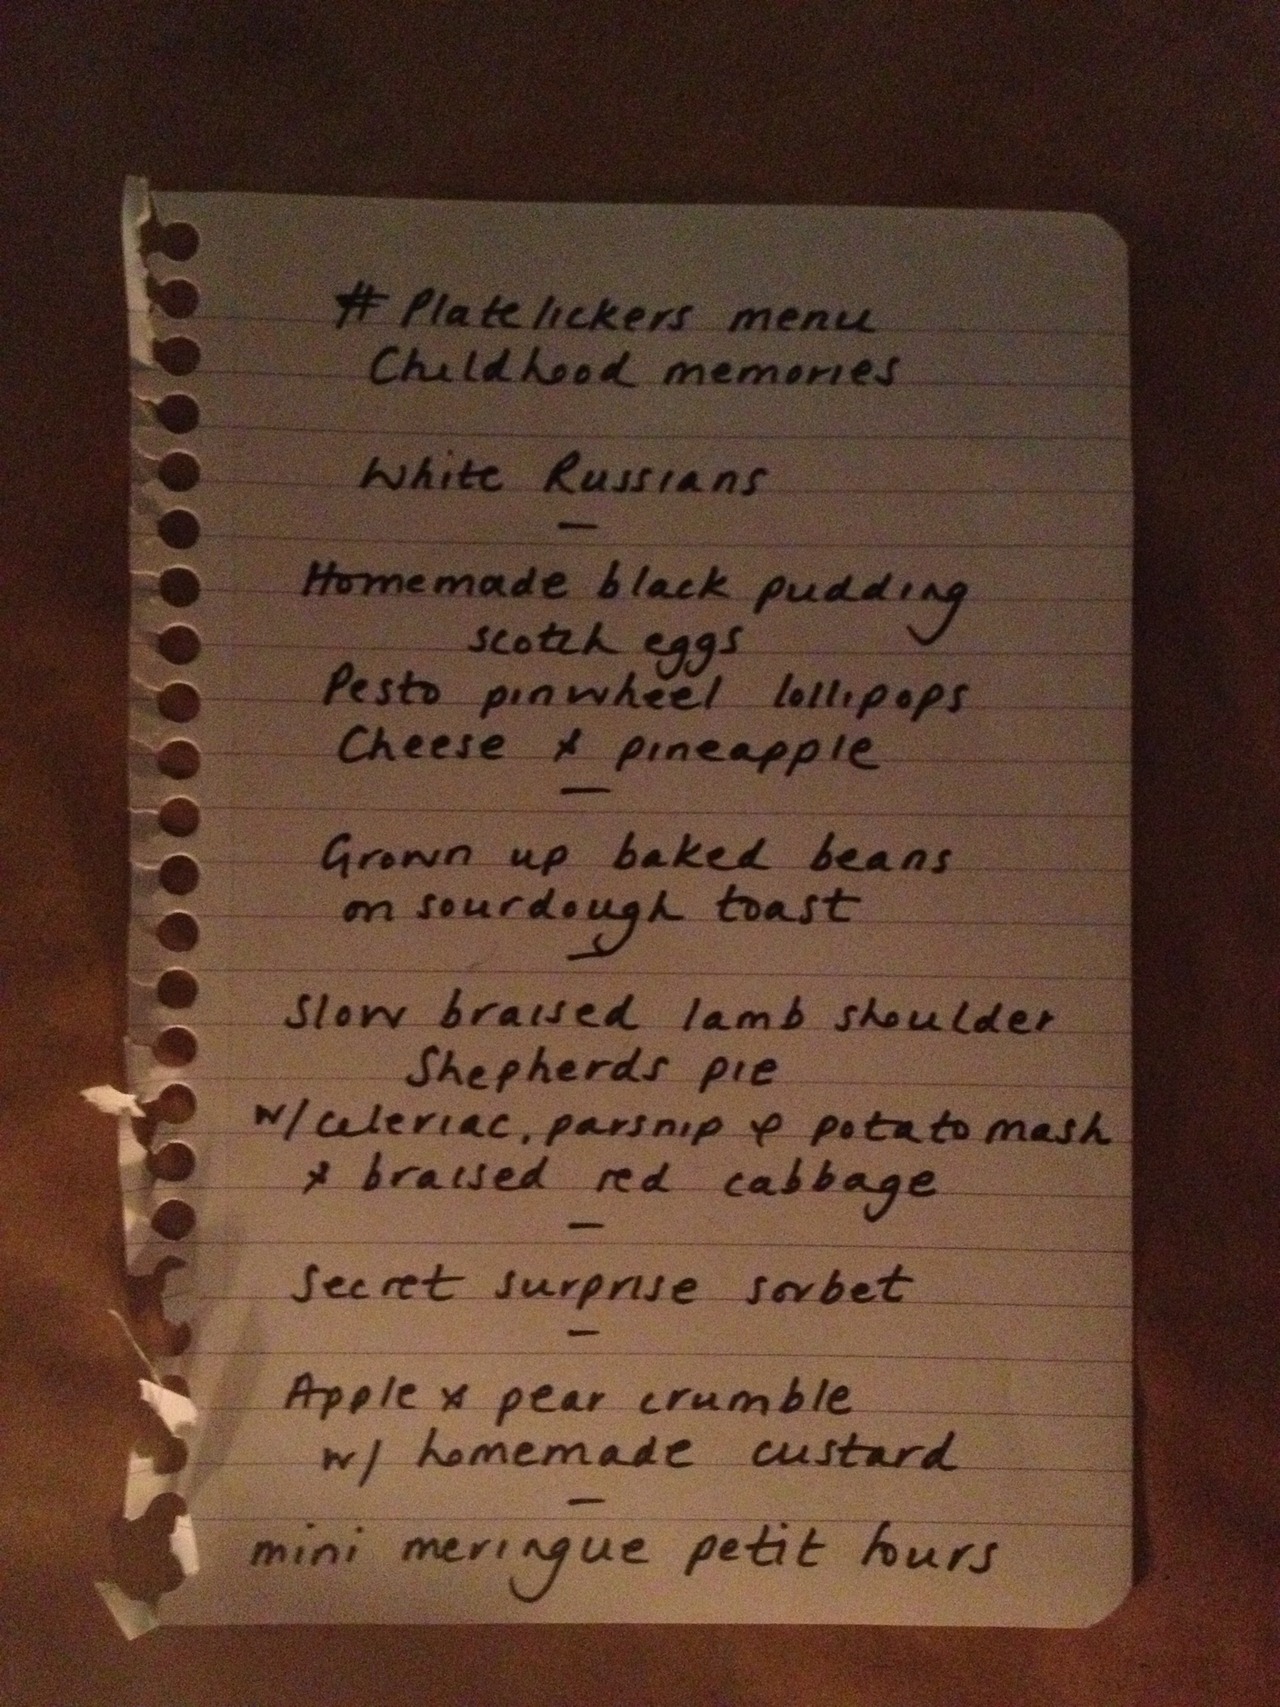 # Platelickers menu
Childhood memories
White Russians
—
Homemade black pudding
scotch eggs
Pesto pinwheel lollipops
Cheese & pineapple
—
Grown up baked beans
on sourdough toast
—
Slow braised lamb shoulder
Shepherds pie
w/ celeriac, parsnip & potato mash
& braised red cabbage
—
Secret surprise sorbet
—
Apple & pear crumble
w/ homemade custard
—
mini meringue petit fours